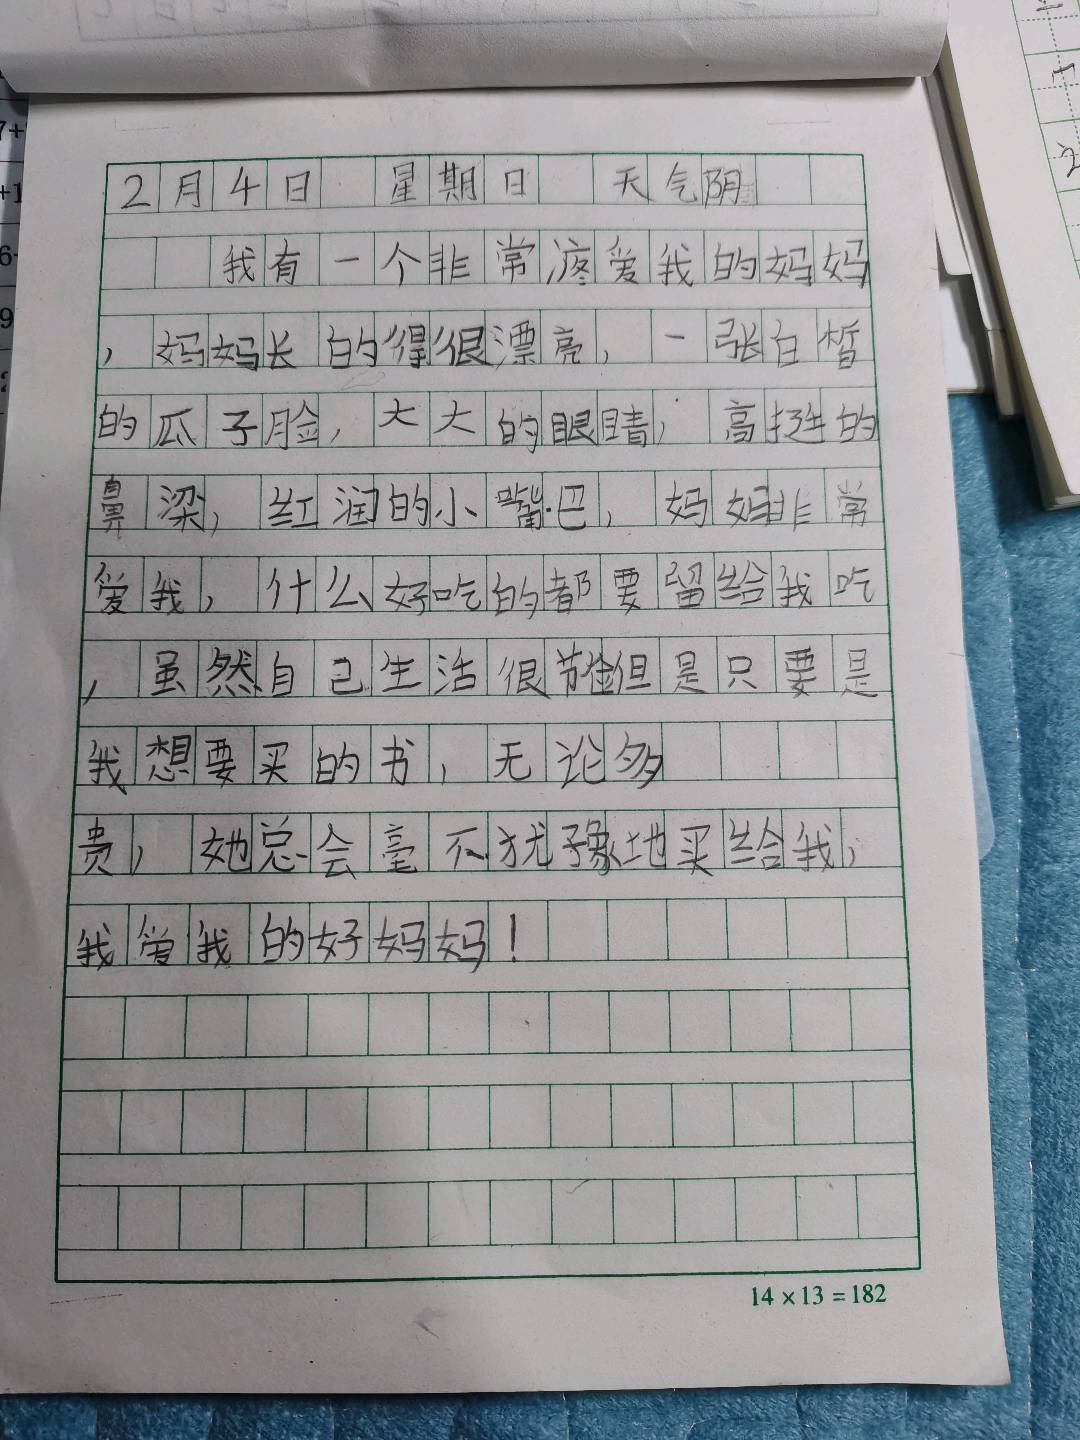 2月4日 星期日 天气阴
我有一个非常疼爱我的妈妈
，妈妈长的得很漂亮，一张白皙
的瓜子脸，大大的眼睛，高挺的
鼻梁，红润的小嘴巴，妈妈非常
爱我，什么好吃的都要留给我吃
，虽然自己生活很节俭但是只要是
我想要买的书，无论多
贵，她总会毫不犹豫地买给我，
我爱我的好妈妈！
14×13=182